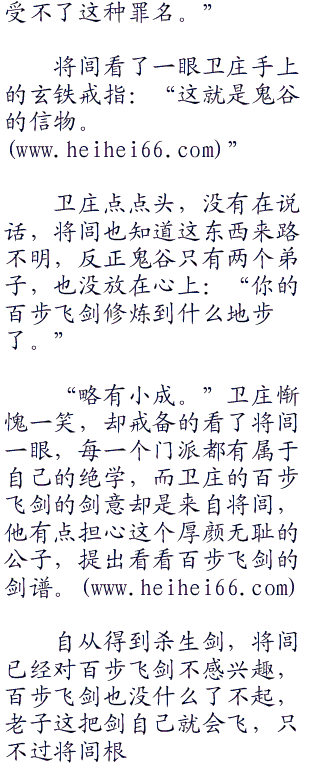 受不了这种罪名。”
将闾看了一眼卫庄手上
的玄铁戒指：“这就是鬼谷
的信物。
(www.heihei66.com)”
卫庄点点头，没有在说
话，将闾也知道这东西来路
不明，反正鬼谷只有两个弟
子，也没放在心上：“你的
百步飞剑修炼到什么地步
了。”
“略有小成。”卫庄惭
愧一笑，却戒备的看了将闾
一眼，每一个门派都有属于
自己的绝学，而卫庄的百步
飞剑的剑意却是来自将闾，
他有点担心这个厚颜无耻的
公子，提出看看百步飞剑的
剑谱。(www.heihei66.com)
自从得到杀生剑，将闾
已经对百步飞剑不感兴趣，
百步飞剑也没什么了不起，
老子这把剑自己就会飞，只
不过将闾根